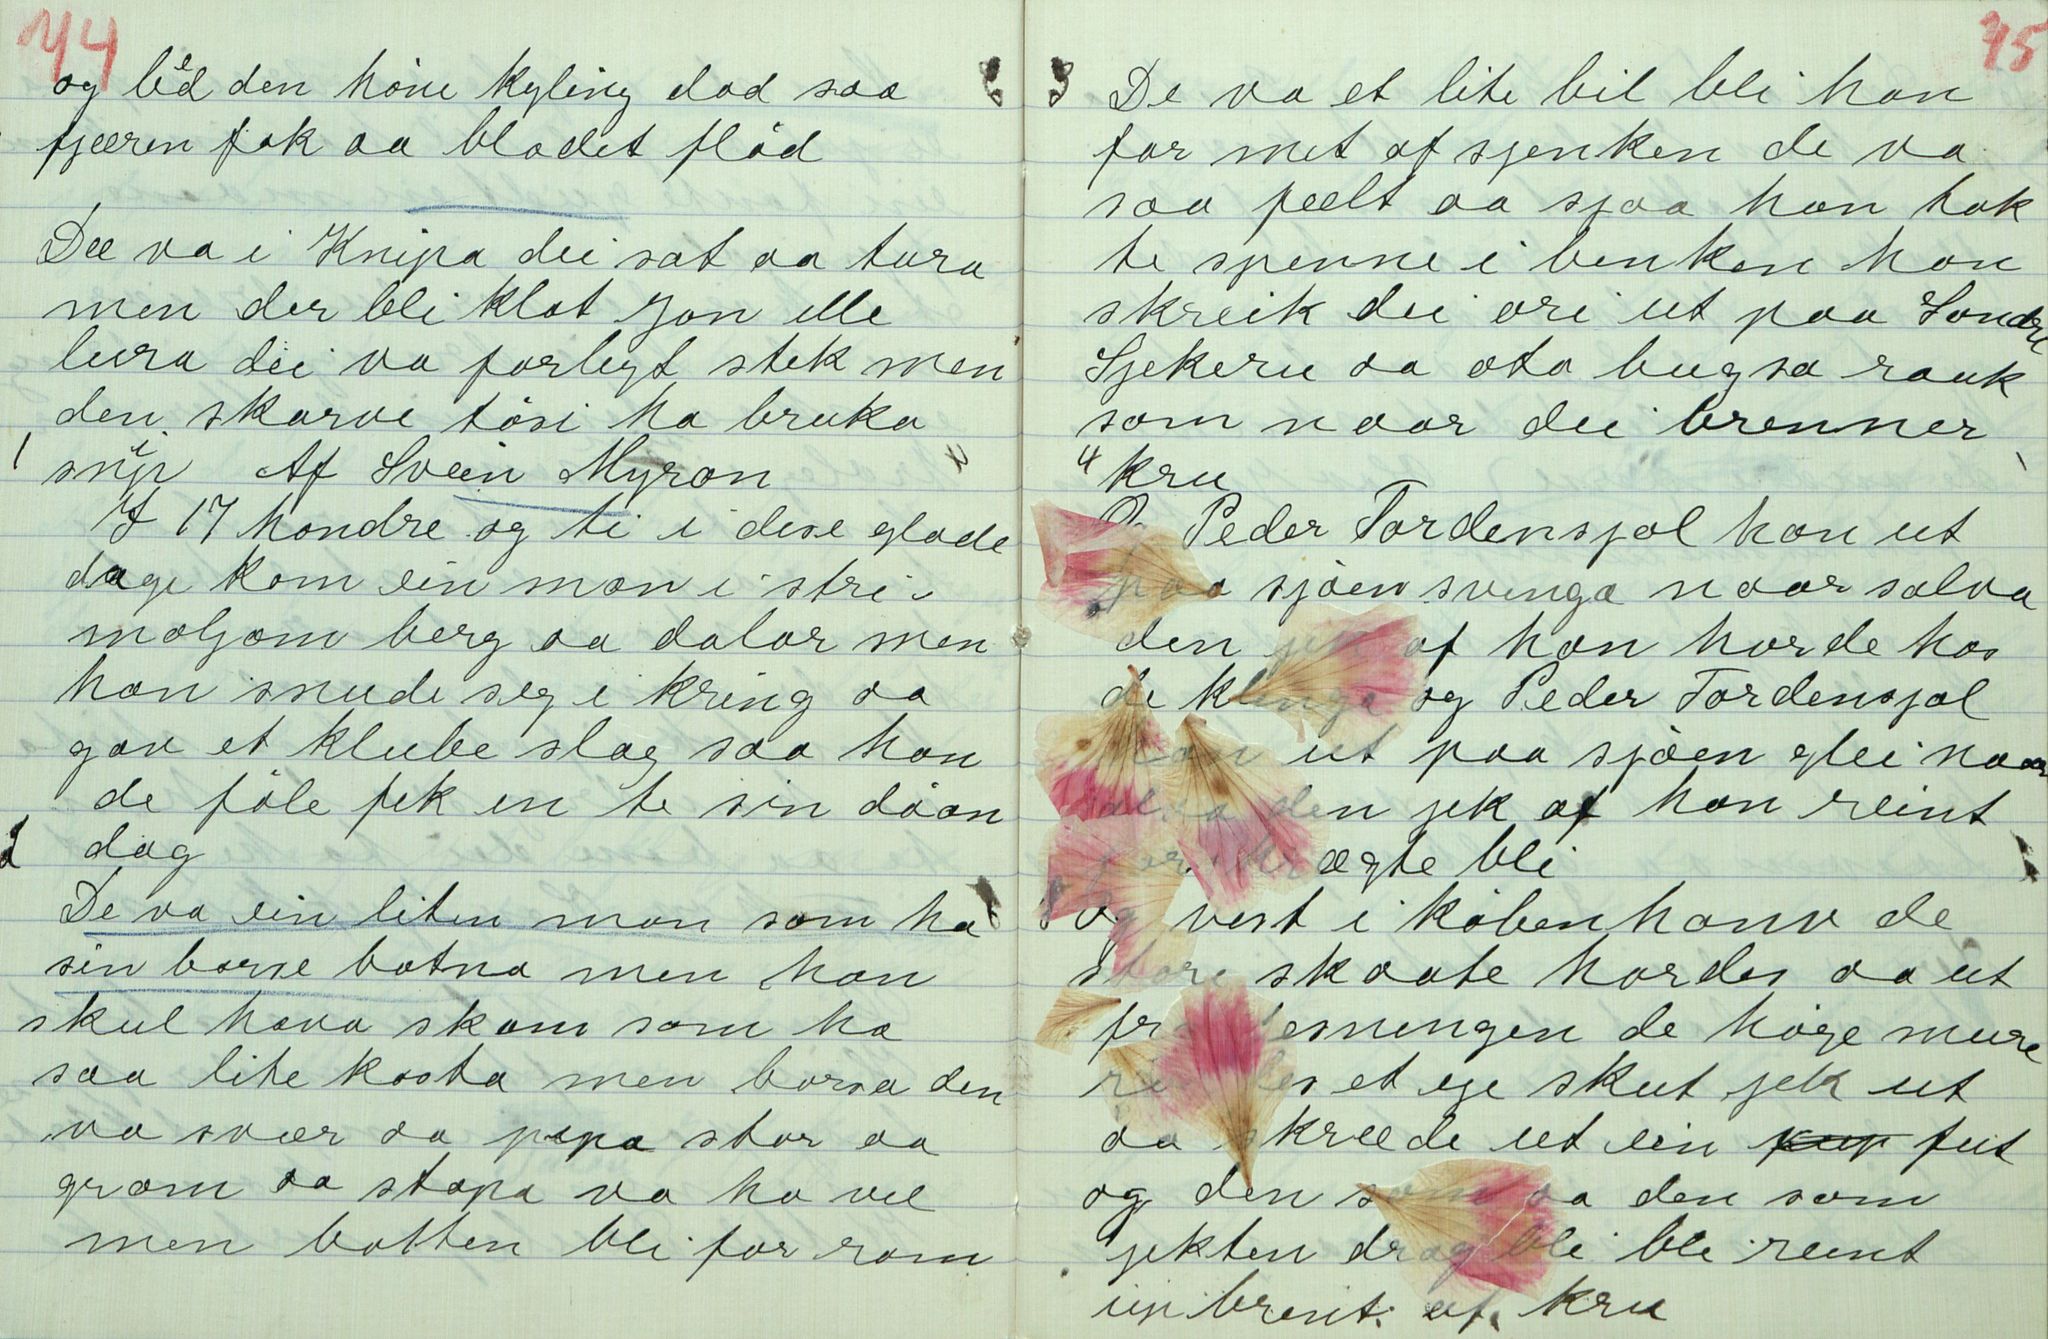 44
og léd den höne kyling dod saa
fjæren fok aa blodet flöd
Dee va i Knipa dei sat aa tura
men der bli klat Jon elle
lura dei va forlegt stek men
den skarve tösi ha bruka
snip Af Svein Myran
I 17 hondre og ti i dese glade
dage kom ein man i stri
maljom berg aa dalar men
han snude seg i kring aa
gav et klube slag saa han
de föle fek en te sin döan
dag
De va ein liten man som ha
sin borse botna men han
skul hava skam som ha
saa lite kosta men borsa den
va svær aa pipa stor aa
gram aa stapa va ha vel
men botten bli for ram
75
De va et lite bil bli han
for met af sjenken de va
saa feelt aa sjaa han tok
te spenne i benken han
skreik dei ori ut paa Sondre
Sjekeru aa ota bugsa rauk
som naar dei brenner
kru
Peder Tordensjol han ut
paa sjöen svinga naar salva
den jek af han horde hos
de klinga og Peder Tordensjol
han ut paa sjöen glei naar
salva den jek af han reint
ægte bli
og vest i köbenhanv de
store skaate hordes aa ut
fra fesningen de höge mure
et eje skut jek ut
aa skreede ut ein fut
og den som aa den som
jekten drog bli bli reint
up brent af kru